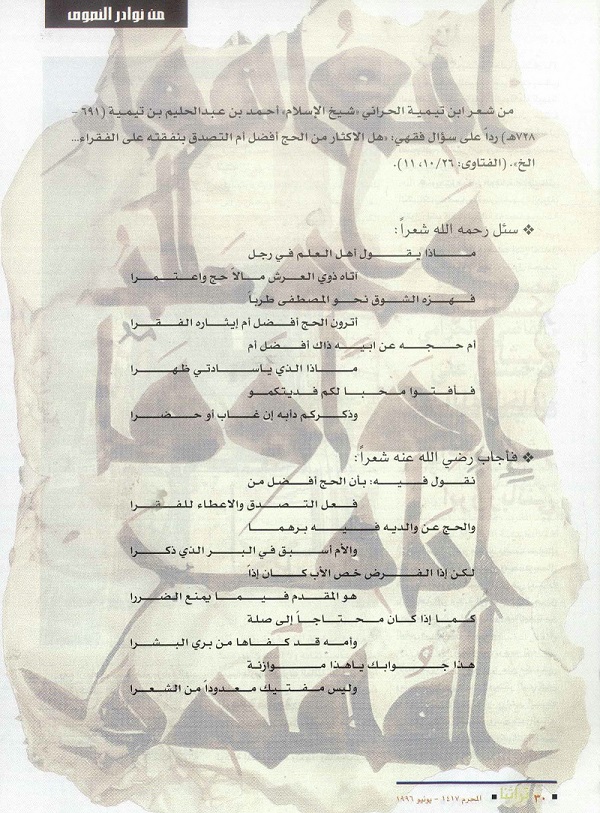 من نوادر النصوص
من شعر ابن تيمية الحراني «شيخ الإسلام» أحمد بن عبدالحليم بن تيمية (٦٩١ –
٧٢٨هـ) رداً على سؤال فقهي: «هل الاكثار من الحج أفضل أم التصدق بنفقته على الفقراء...
الخ». (الفتاوى: ١٠/٢٦، ١١).
❖ سئل رحمه الله شعراً:
ماذا يقول أهل العلم في رجل
أتاه ذوي العرش مالاً حج واعتمرا
فهزه الشوق نحو المصطفى طرباً
أترون الحج أفضل أم إيثاره الفقرا
أم حجه عن ابيه ذاك أفضل أم
ماذا الذي ياسادتي ظهرا
فأفتوا محبا لكم فديتكمو
وذكركم دأبه إن غاب أو حضرا
❖ فأجاب رضي الله عنه شعراً:
نقول فيه: بأن الحج أفضل من
فعل التصدق والاعطاء للفقرا
والحج عن والديه فيه برهما
والأم أسبق في البر الذي ذكرا
لكن إذا الفرض خص الأب كان إذاً
هو المقدم فيما يمنع الضررا
كما إذا كان محتاجاً إلى صلة
وأمه قد كفاها من بري البشرا
هذا جوابك ياهذا موازنة
وليس مفتيك معدوداً من الشعرا
٣٠ تراثنا ■ المحرم ١٤١٧ – يونيو ١٩٩٦ ■